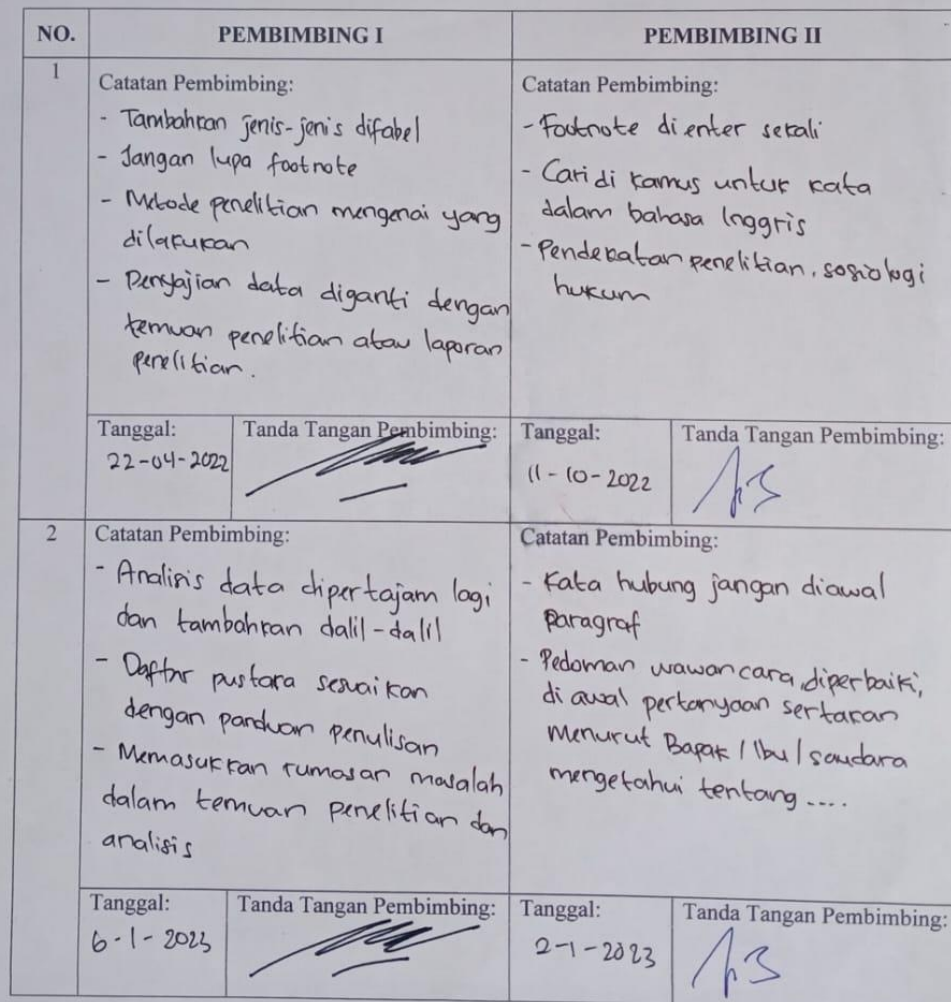 NO. PEMBIMBING I PEMBIMBING II
1
Catatan Pembimbing:
- Tambahkan jenis-jenis difabel
- Jangan lupa footnote
- Metode penelitian mengenai yang
dilakukan
- Penyajian data diganti dengan
temuan penelitian atau laporan
penelitian.
Tanggal: Tanda Tangan Pembimbing:
22-04-2022
Catatan Pembimbing:
- Footnote di enter sekali
- Cari di kamus untuk kata
dalam bahasa Inggris
- Pendekatan penelitian, sosiologi
hukum
Tanggal: Tanda Tangan Pembimbing:
11-10-2022
2
Catatan Pembimbing:
- Analisis data dipertajam lagi
dan tambahkan dalil-dalil
- Daftar pustaka sesuaikan
dengan panduan penulisan
- Memasukkan rumusan masalah
dalam temuan penelitian dan
analisis
Tanggal: Tanda Tangan Pembimbing:
6-1-2023
Catatan Pembimbing:
- Kata hubung jangan diawal
paragraf
- Pedoman wawancara, diperbaiki,
di awal pertanyaan sertakan
Menurut Bapak / Ibu / saudara
mengetahui tentang ....
Tanggal: Tanda Tangan Pembimbing:
2-1-2023